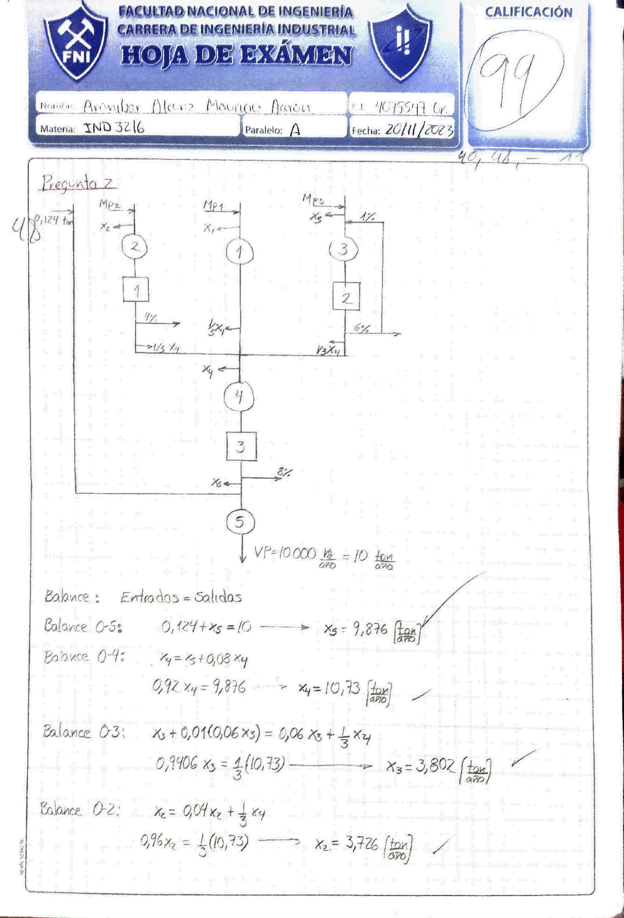 FACULTAD NACIONAL DE INGENIERÍA
CARRERA DE INGENIERÍA INDUSTRIAL
HOJA DE EXÁMEN
FNI
CALIFICACIÓN
99
Nombre: Aronibar Alcaraz Mauricio Aaron
C.I: 4075597 Or.
Materia: IND 3216
Paralelo: A
Fecha: 20/11/2023
Pregunta 2
48
0,124 ton
MP2
MP1
MP3
x2
x1
x3
1%
2
1
3
1
2
4%
1/3 x4
1/3 x4
6%
1/3 x4
x4
4
3
8%
x5
5
VP = 10000 kg/año = 10 ton/año
Balance: Entradas = Salidas
Balance O-5: 0,124 + x5 = 10 → x5 = 9,876 [ton/año]
Balance O-4: x4 = x5 + 0,08 x4
0,92 x4 = 9,876 → x4 = 10,73 [ton/año]
Balance O-3: x3 + 0,01(0,06 x3) = 0,06 x3 + 1/3 x4
0,9406 x3 = 1/3 (10,73) → x3 = 3,802 [ton/año]
Balance O-2: x2 = 0,04 x2 + 1/3 x4
0,96 x2 = 1/3 (10,73) → x2 = 3,726 [ton/año]